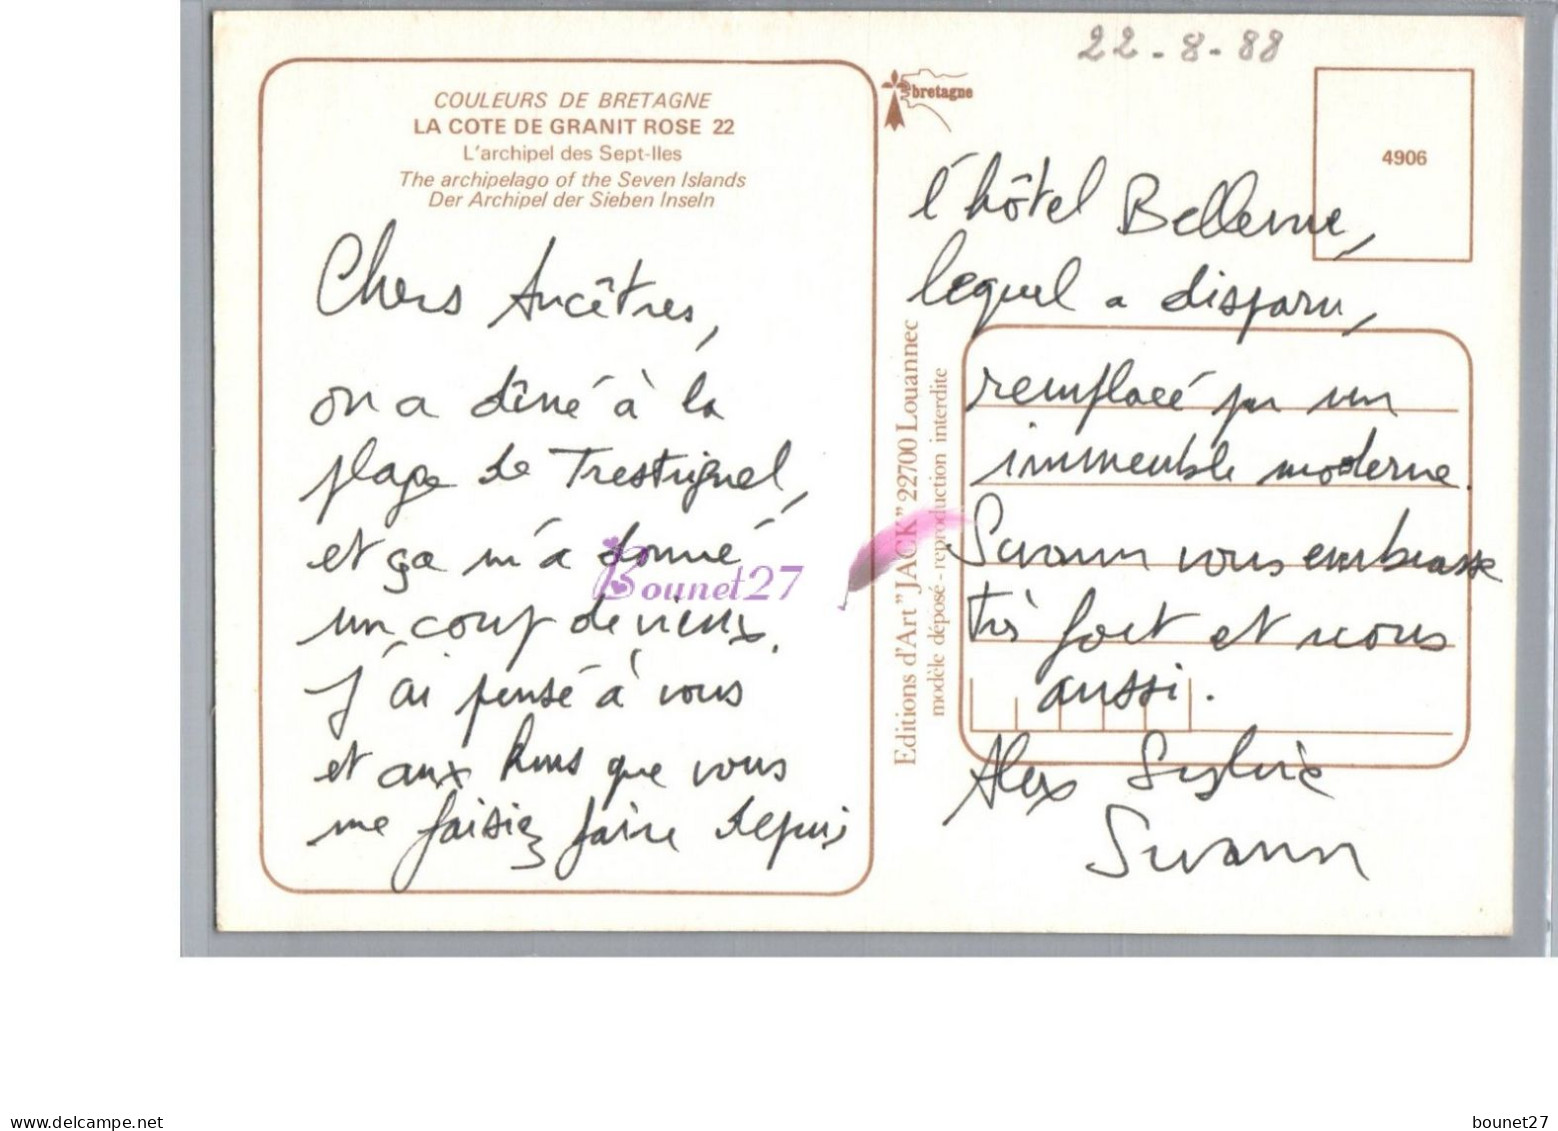 22-8-88
COULEURS DE BRETAGNE
LA COTE DE GRANIT ROSE 22
L'archipel des Sept-Iles
The archipelago of the Seven Islands
Der Archipel der Sieben Inseln
bretagne
4906
Chers Ancêtres,
on a dîné à la
plage de Trestrignel,
et ça m'a donné
un coup de vieux.
J'ai pensé à vous
et aux kms que vous
me faisiez faire depuis
Editions d'Art "JACK" 22700 Louannec
modèle déposé - reproduction interdite
l'hôtel Bellevue,
lequel a disparu,
remplacé par un
immeuble moderne.
Swann vous embrasse
très fort et nous
aussi.
Alex Sylvie
Swann
Bounet27
www.delcampe.net
bounet27